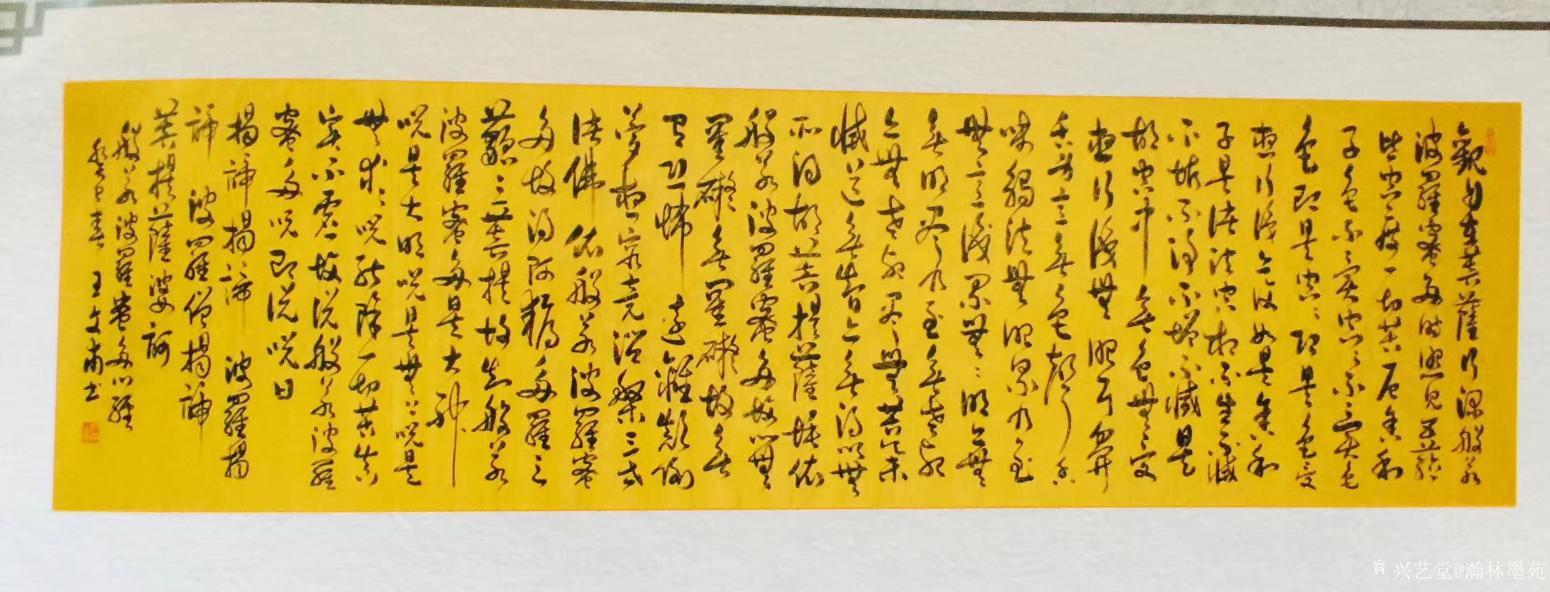 觀自在菩薩行深般若
波羅蜜多時照見五蘊
皆空度一切苦厄舍利
子色不異空空不異色
色即是空空即是色受
想行識亦復如是舍利
子是諸法空相不生不滅
不垢不淨不增不減是
故空中無色無受
想行識無眼耳鼻
舌身意無色聲香
味觸法無眼界乃至
無意識界無無明亦無
無明盡乃至無老死
亦無老死盡無苦集
滅道無智亦無得以無
所得故菩提薩埵依
般若波羅蜜多故心無
罣礙無罣礙故無
有恐怖遠離顛倒
夢想究竟涅槃三世
諸佛依般若波羅蜜
多故得阿耨多羅三
藐三菩提故知般若
波羅蜜多是大神
咒是大明咒是無上咒是
無等等咒能除一切苦真
實不虛故說般若波羅
蜜多咒即說咒曰
揭諦揭諦 波羅揭
諦 波羅僧揭諦
菩提薩婆訶
般若波羅蜜多心經
癸巳春 王文甫书
兴艺堂@瀚林墨苑